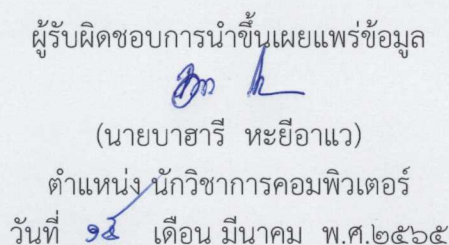 ผู้รับผิดชอบการนำขึ้นเผยแพร่ข้อมูล
(นายบาฮารี หะยีอาแว)
ตำแหน่ง นักวิชาการคอมพิวเตอร์
วันที่ ๑๕ เดือน มีนาคม พ.ศ.๒๕๖๕